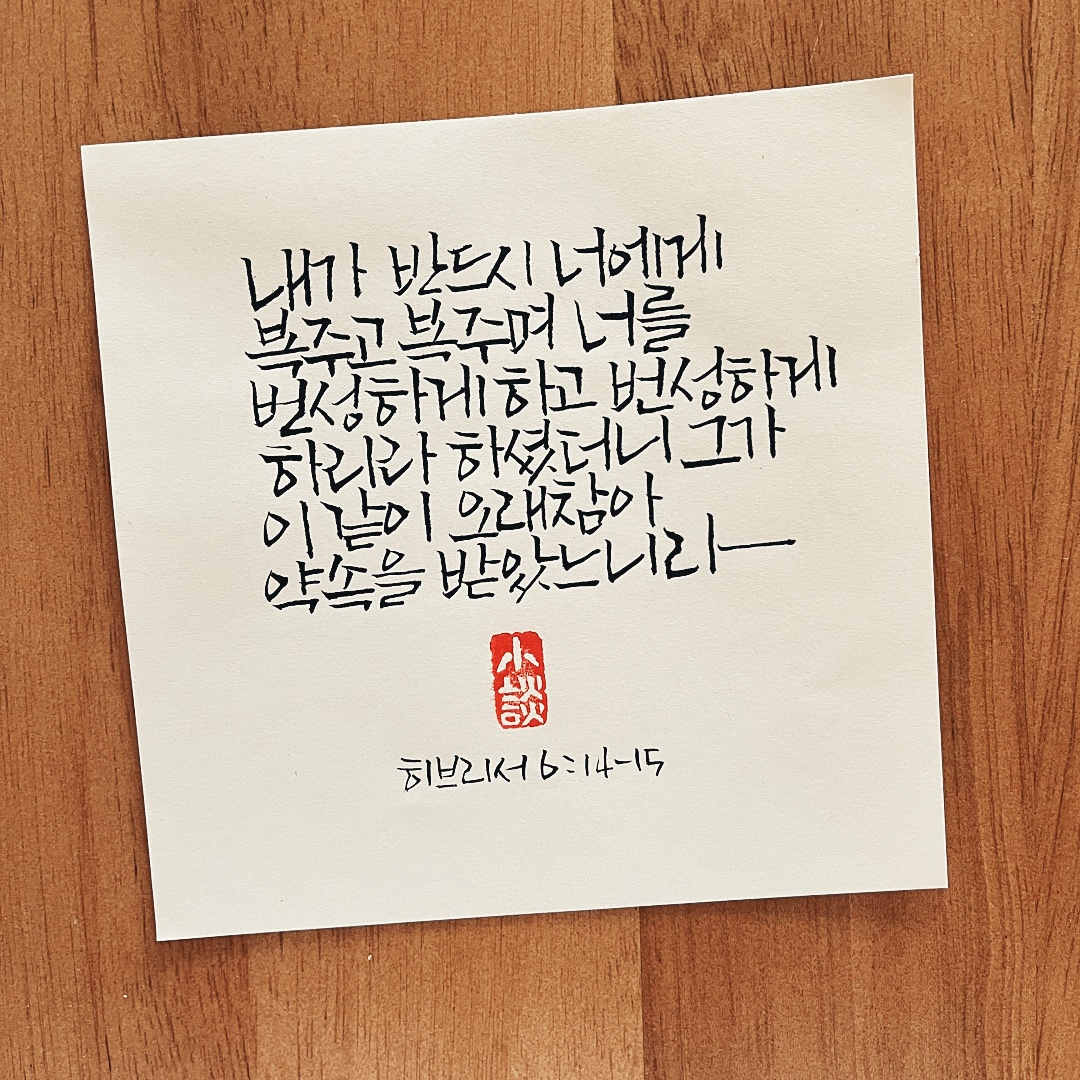 내가 반드시 너에게
복주고 복주며 너를
번성하게 하고 번성하게
하리라 하셨더니 그가
이같이 오래참아
약속을 받았느니라
小談
히브리서 6:14-15